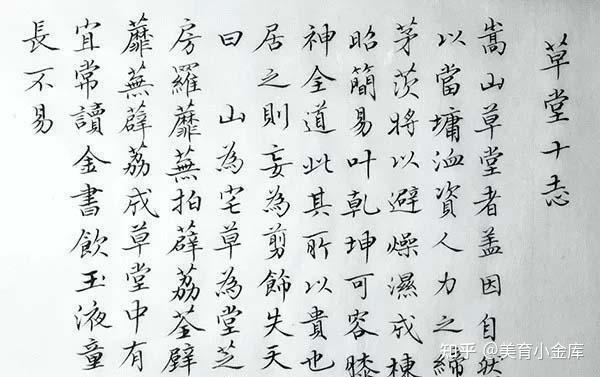 草堂十志
嵩山草堂者盖因自然
以當墉洫資人力之締
茅茨將以避燥濕成棟
昭簡易叶乾坤可容膝
神全道此其所以貴也
居之則妄為剪飾失天
曰 山為宅草為堂芝
房羅蘼蕪拍薜荔荃壁
蘼蕪薜荔成草堂中有
宜常讀金書飲玉液童
長不易
知乎 @美育小金库